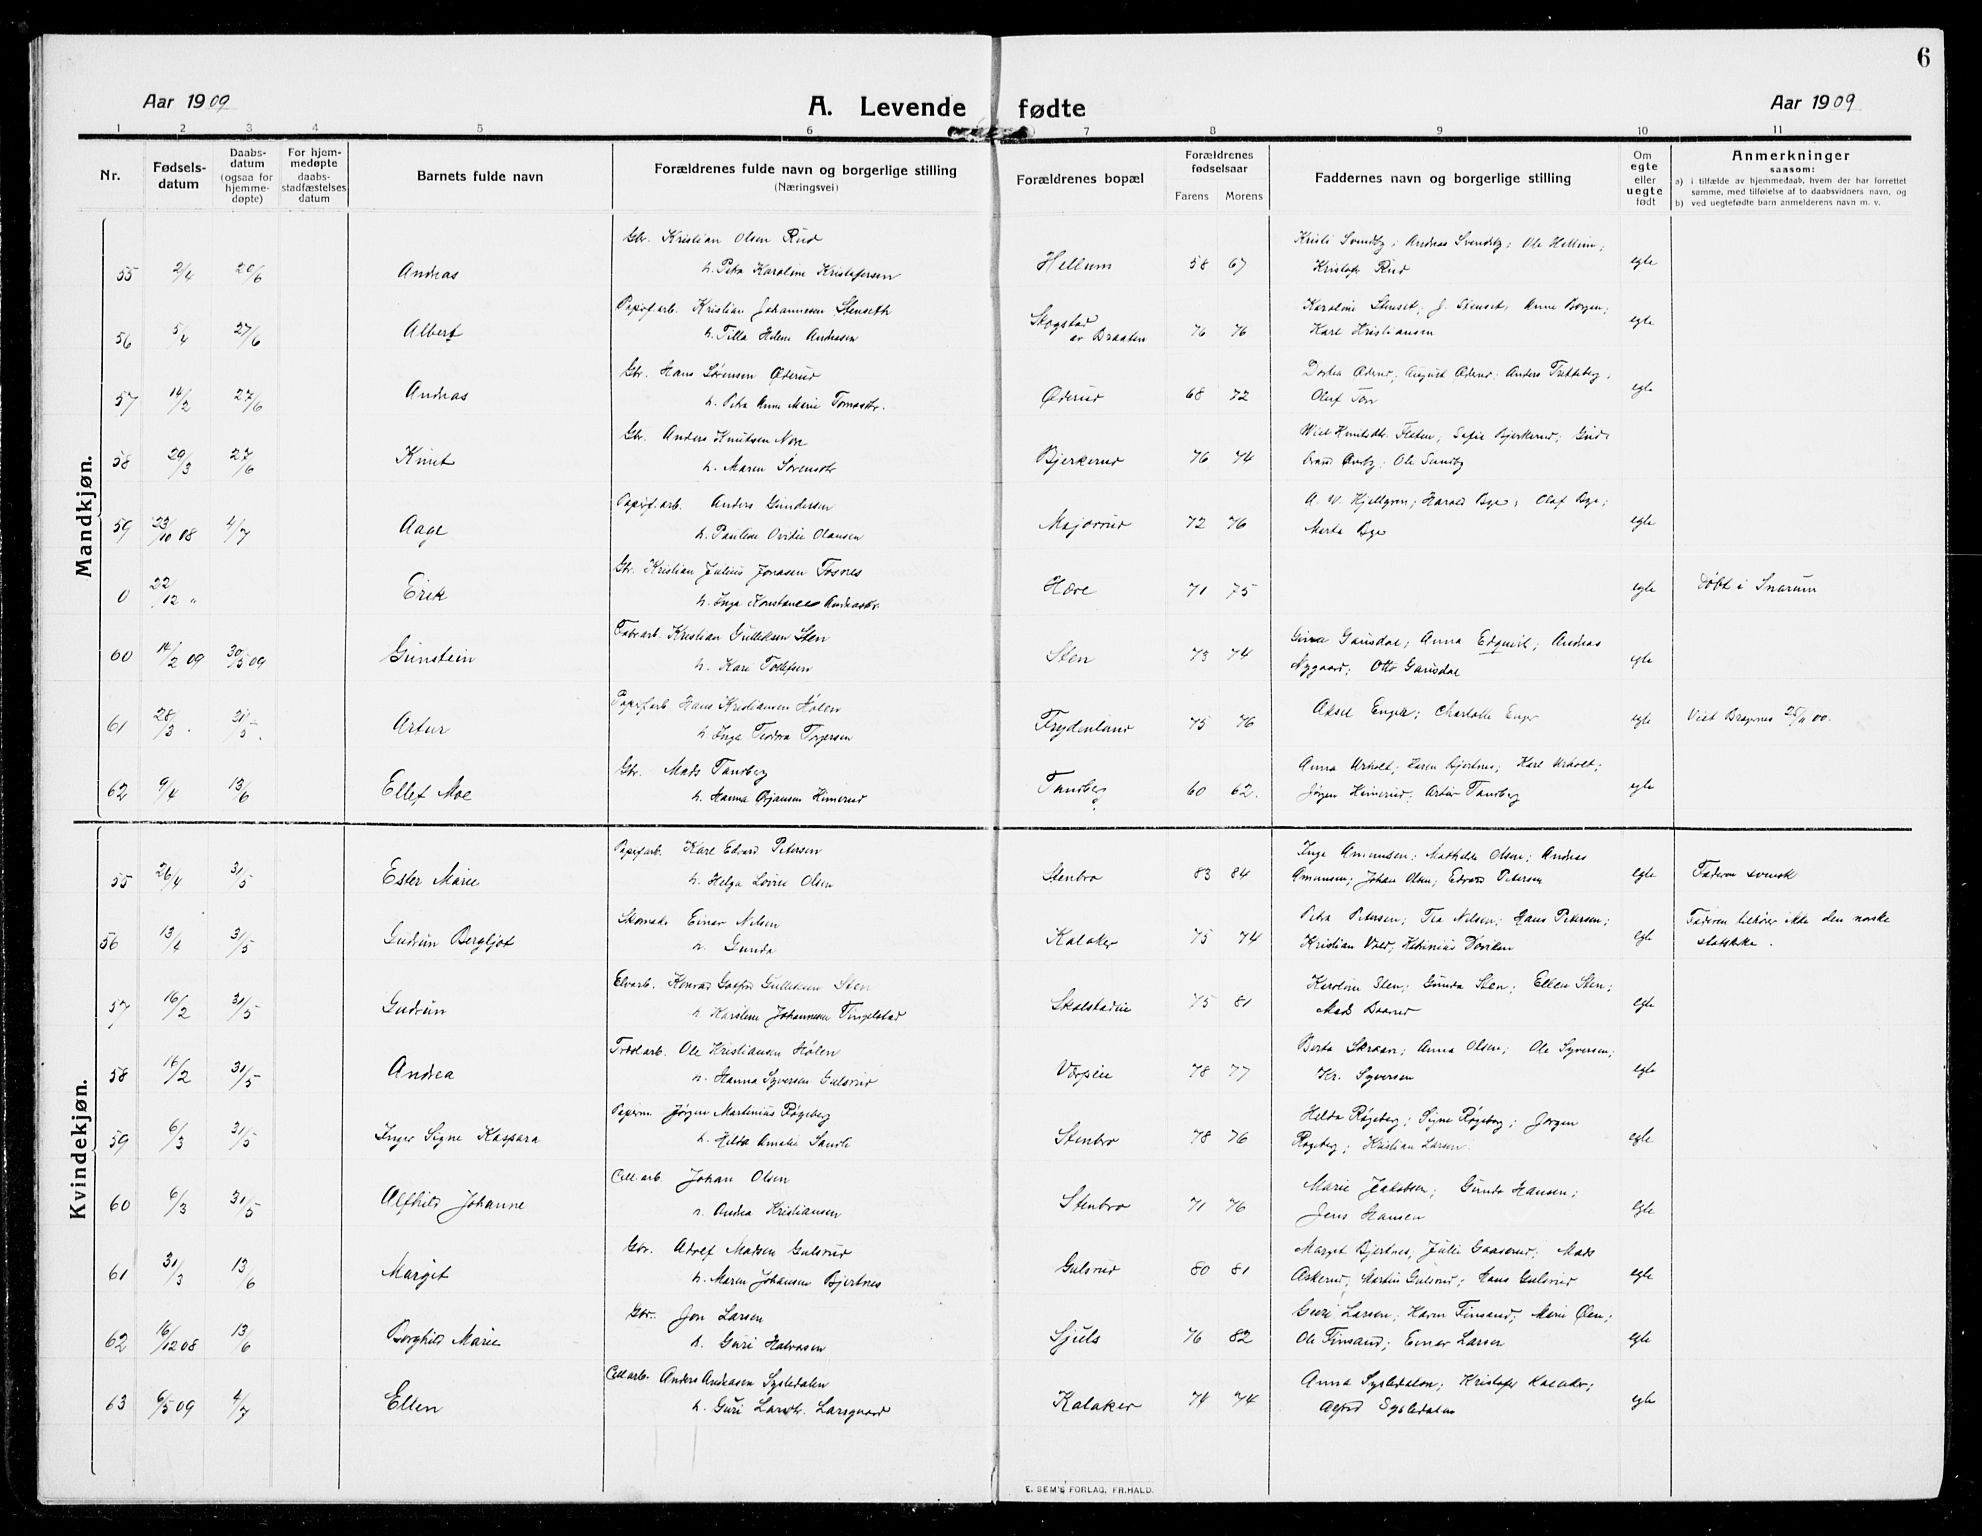 6
Aar 1909
A. Levende fødte
Aar 1909
1 2 3 4 5 6 7 8 9 10 11
Nr.
Fødsels-
datum
Daabs-
datum
(ogsaa for
hjemme-
døpte)
For hjem-
medøpte
daabs-
stadfæstelses
datum
Barnets fulde navn
Forældrenes fulde navn og borgerlige stilling
(Næringsvei)
Forældrenes bopæl
Forældrenes
fødselsaar
Farens Morens
Faddernes navn og borgerlige stilling
Om
egte
eller
uegte
født
Anmerkninger
saasom:
a) i tilfælde av hjemmedaab, hvem der har forrettet
samme, med tilføielse af to daabsvidners navn, og
b) ved uegtefødte barn anmelderens navn m. v.
Mandkjøn.
Gbr. Kristian Olsen Rud
55 2/4 20/6 Andreas
h. Petra Karoline Kristofersen
Hellum 58 67
Kristi Svendby; Andreas Svendby; Ole Hellum;
Kristofer Rud
egte
Papirf.arb. Kristian Johannesen Stenseth
56 5/4 27/6 Albert
h. Tilla Helene Andreasen
Skogstad
av Braaten 76 76
Karoline Stenset; J. Stenset; Anne Borgen;
Karl Kristiansen
egte
Gbr. Hans Sørensen Øderud
57 14/2 27/6 Andreas
h. Petra Anne Marie Tomasdtr.
Øderud 68 72
Dortea Øderud; August Øderud; Anders Tretteberg;
Oluf
egte
Gbr. Anders Knutsen
58 20/3 27/6 Knut
h. Maren Sørensdtr
Bjerkerud 76 74
Flaten; Sofie Bjerkerud; Gud-
brand Øverby; Ole Sundby
Papirf.arb. Anders Gundersen
59 23/10 08 4/7 Aage
h. Pauline Olausen
Majorrud 72 76
A. W. Hjellgren; Harald Bye; Olaf Bye;
Marta Bye
egte
Gbr. Kristian Julius Jonasen
0 22/12 " Erik
h. Inga Konstance Andreasdtr.
Hære 71 75
egte
Døbt i Snarum
Kristian Gulliksen Sten
60 14/2 09 30/5 09 Gunstein
h. Kari Tollefsen
Sten 73 74
Gina Gausdal; Anna Edquist; Andreas
Nygaard; Otto Gausdal
egte
Papirf.arb Hans Kristiansen Hølen
61 28/3 . 31/5 . Artur
h. Inga Teodora Torgersen
Frydenlund 75 76
Aksel Enger; Charlotte Enger
egte
Viet Bragernes 25/11 00.
Gbr. Mads Tandberg
62 9/4 13/6 Ellef Moe
h. Hanna Himerud
Tandberg 60 62.
Anna Urholt; Karen Bjertnes; Karl Urholt;
Jørgen Himerud; Artur Tandberg
egte
Kvindekjøn.
Papirf.arb. Karl Edvard Petersen
55 26/4 31/5 Ester Marie
h. Helga Lovise Olsen
Stenbro 83 84
Inga Amundsen; Mathilde Olsen; Andreas
Amundsen; Johan Olsen; Edvard Petersen
egte
Faderen svensk
Skomak. Einar Nilsen
56 13/4 31/5 Gudrun Bergljot
h. Gunda
Kalaker 75 74
Petra Petersen; Tea Nilsen; Hans Petersen;
Kristian Vold;
egte
Faderen tilhører ikke den norske
statskirke.
Elvarb. Konrad Gotfred Gulliksen Sten
57 16/2 31/5 Gudrun
h. Karoline Johannesen Tingelstad
Skalstadeie 75 81
Karoline Sten; Gunda Sten; Ellen Sten;
Mads Braarud
egte
Ole Kristiansen Hølen
58 16/2 31/5 Andrea
h. Hanna Syversen Gulsrud
78 77
Berta Skraan; Anna Olsen; Ole Syversen;
Kr. Syversen
egte
Papirm. Jørgen Martinius Røgeberg
59 6/3 31/5 Inger Signe Kaspara
h. Hilda Amalie
Stenbro 78 76
Helda Røgeberg; Signe Røgeberg; Jørgen
Røgeberg; Kristian Larsen.
egte
Cell.arb. Johan Olsen
60 6/3 31/5 Alfhild Johanne
h. Andrea Kristiansen
Stenbro 71 76
Marie Jakobsen; Gunda Hansen;
Jens Hansen
egte
Gbr. Adolf Madsen Gulsrud
61 31/3 13/6 Margit
h. Maren Johansen Bjertnes
Gulsrud 80 81
Marget Bjertnes; Julie Gaaserud; Mads
Askerud; Martin Gulsrud; Hans Gulsrud
egte
Gbr. Jon Larsen
62 16/12 08 13/6 Borghild Marie
h. Guri Halvorsen
Sjuls 76 82
Guri Larsen; Karen Finsand; Marie Øen;
Ole Finsand; Einar Larsen
egte
Cell.arb. Anders Andreasen Sysledalen
63 6/5 09 4/7 Ellen
h. Guri Larsdtr. Larsgaard
Kalaker 74 74
Anna Sysledalen; Kristofer Kalaker;
Alfred Sysledalen
egte
E. SEM'S FORLAG, FR.HALD.